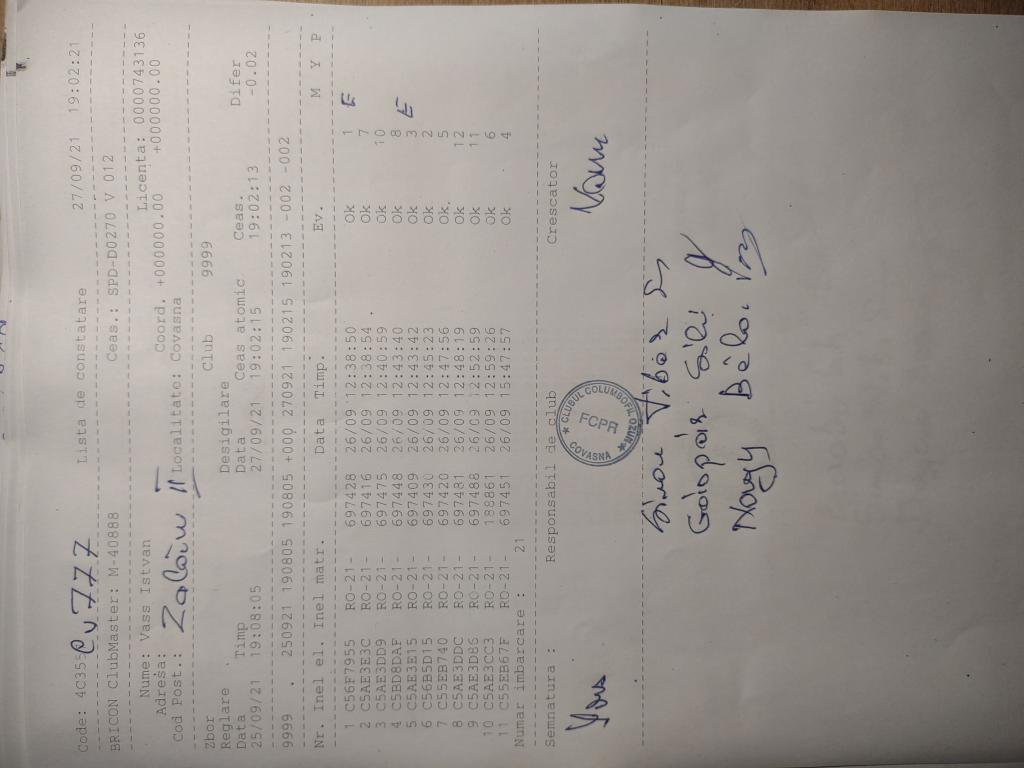 Code: 4C355 Cv 777 Lista de constatare 27/09/21 19:02:21
BRICON ClubMaster: M-40888 Ceas.: SPD-D0270 V 012
Nume: Vass Istvan Licenta: 0000743136
Adresa: Coord. +000000.00 +0000000.00
Cod Post.: Zalău II Localitate: Covasna
Zbor Club 9999
Reglare Desigilare
Data Timp Data Ceas atomic Ceas. Difer
25/09/21 19:08:05 27/09/21 19:02:15 19:02:13 -0.02
9999 . 250921 190805 190805 +000 270921 190215 190213 -002 -002
Nr. Inel el. Inel matr. Data Timp. Ev. M Y P
1 C56F7955 RO-21- 697428 26/09 12:38:50 Ok 1 E
2 C5AE3E3C RO-21- 697416 26/09 12:38:54 Ok 7
3 C5AE3DD9 RO-21- 697475 26/09 12:40:59 Ok 10
4 C5BD8DAF RO-21- 697448 26/09 12:43:40 Ok 8
5 C5AE3E15 RO-21- 697409 26/09 12:43:42 Ok 3 E
6 C56B5D15 RO-21- 697430 26/09 12:45:23 Ok 2
7 C55EB740 RO-21- 697420 26/09 12:47:56 Ok. 5
8 C5AE3DDC RO-21- 697481 26/09 12:48:19 Ok 12
9 C5AE3D86 RO-21- 697488 26/09 12:52:59 Ok 11
10 C5AE3CC3 RO-21- 188861 26/09 12:59:26 Ok 6
11 C55EB67F RO-21- 697451 26/09 15:47:57 Ok 4
Numar imbarcare : 21
Semnatura : Responsabil de club Crescator
★ CLUBUL COLUMBOFIL OZUN ★ COVASNA
FCPR
Simon Tibor
Gáspár
Nagy Béla.